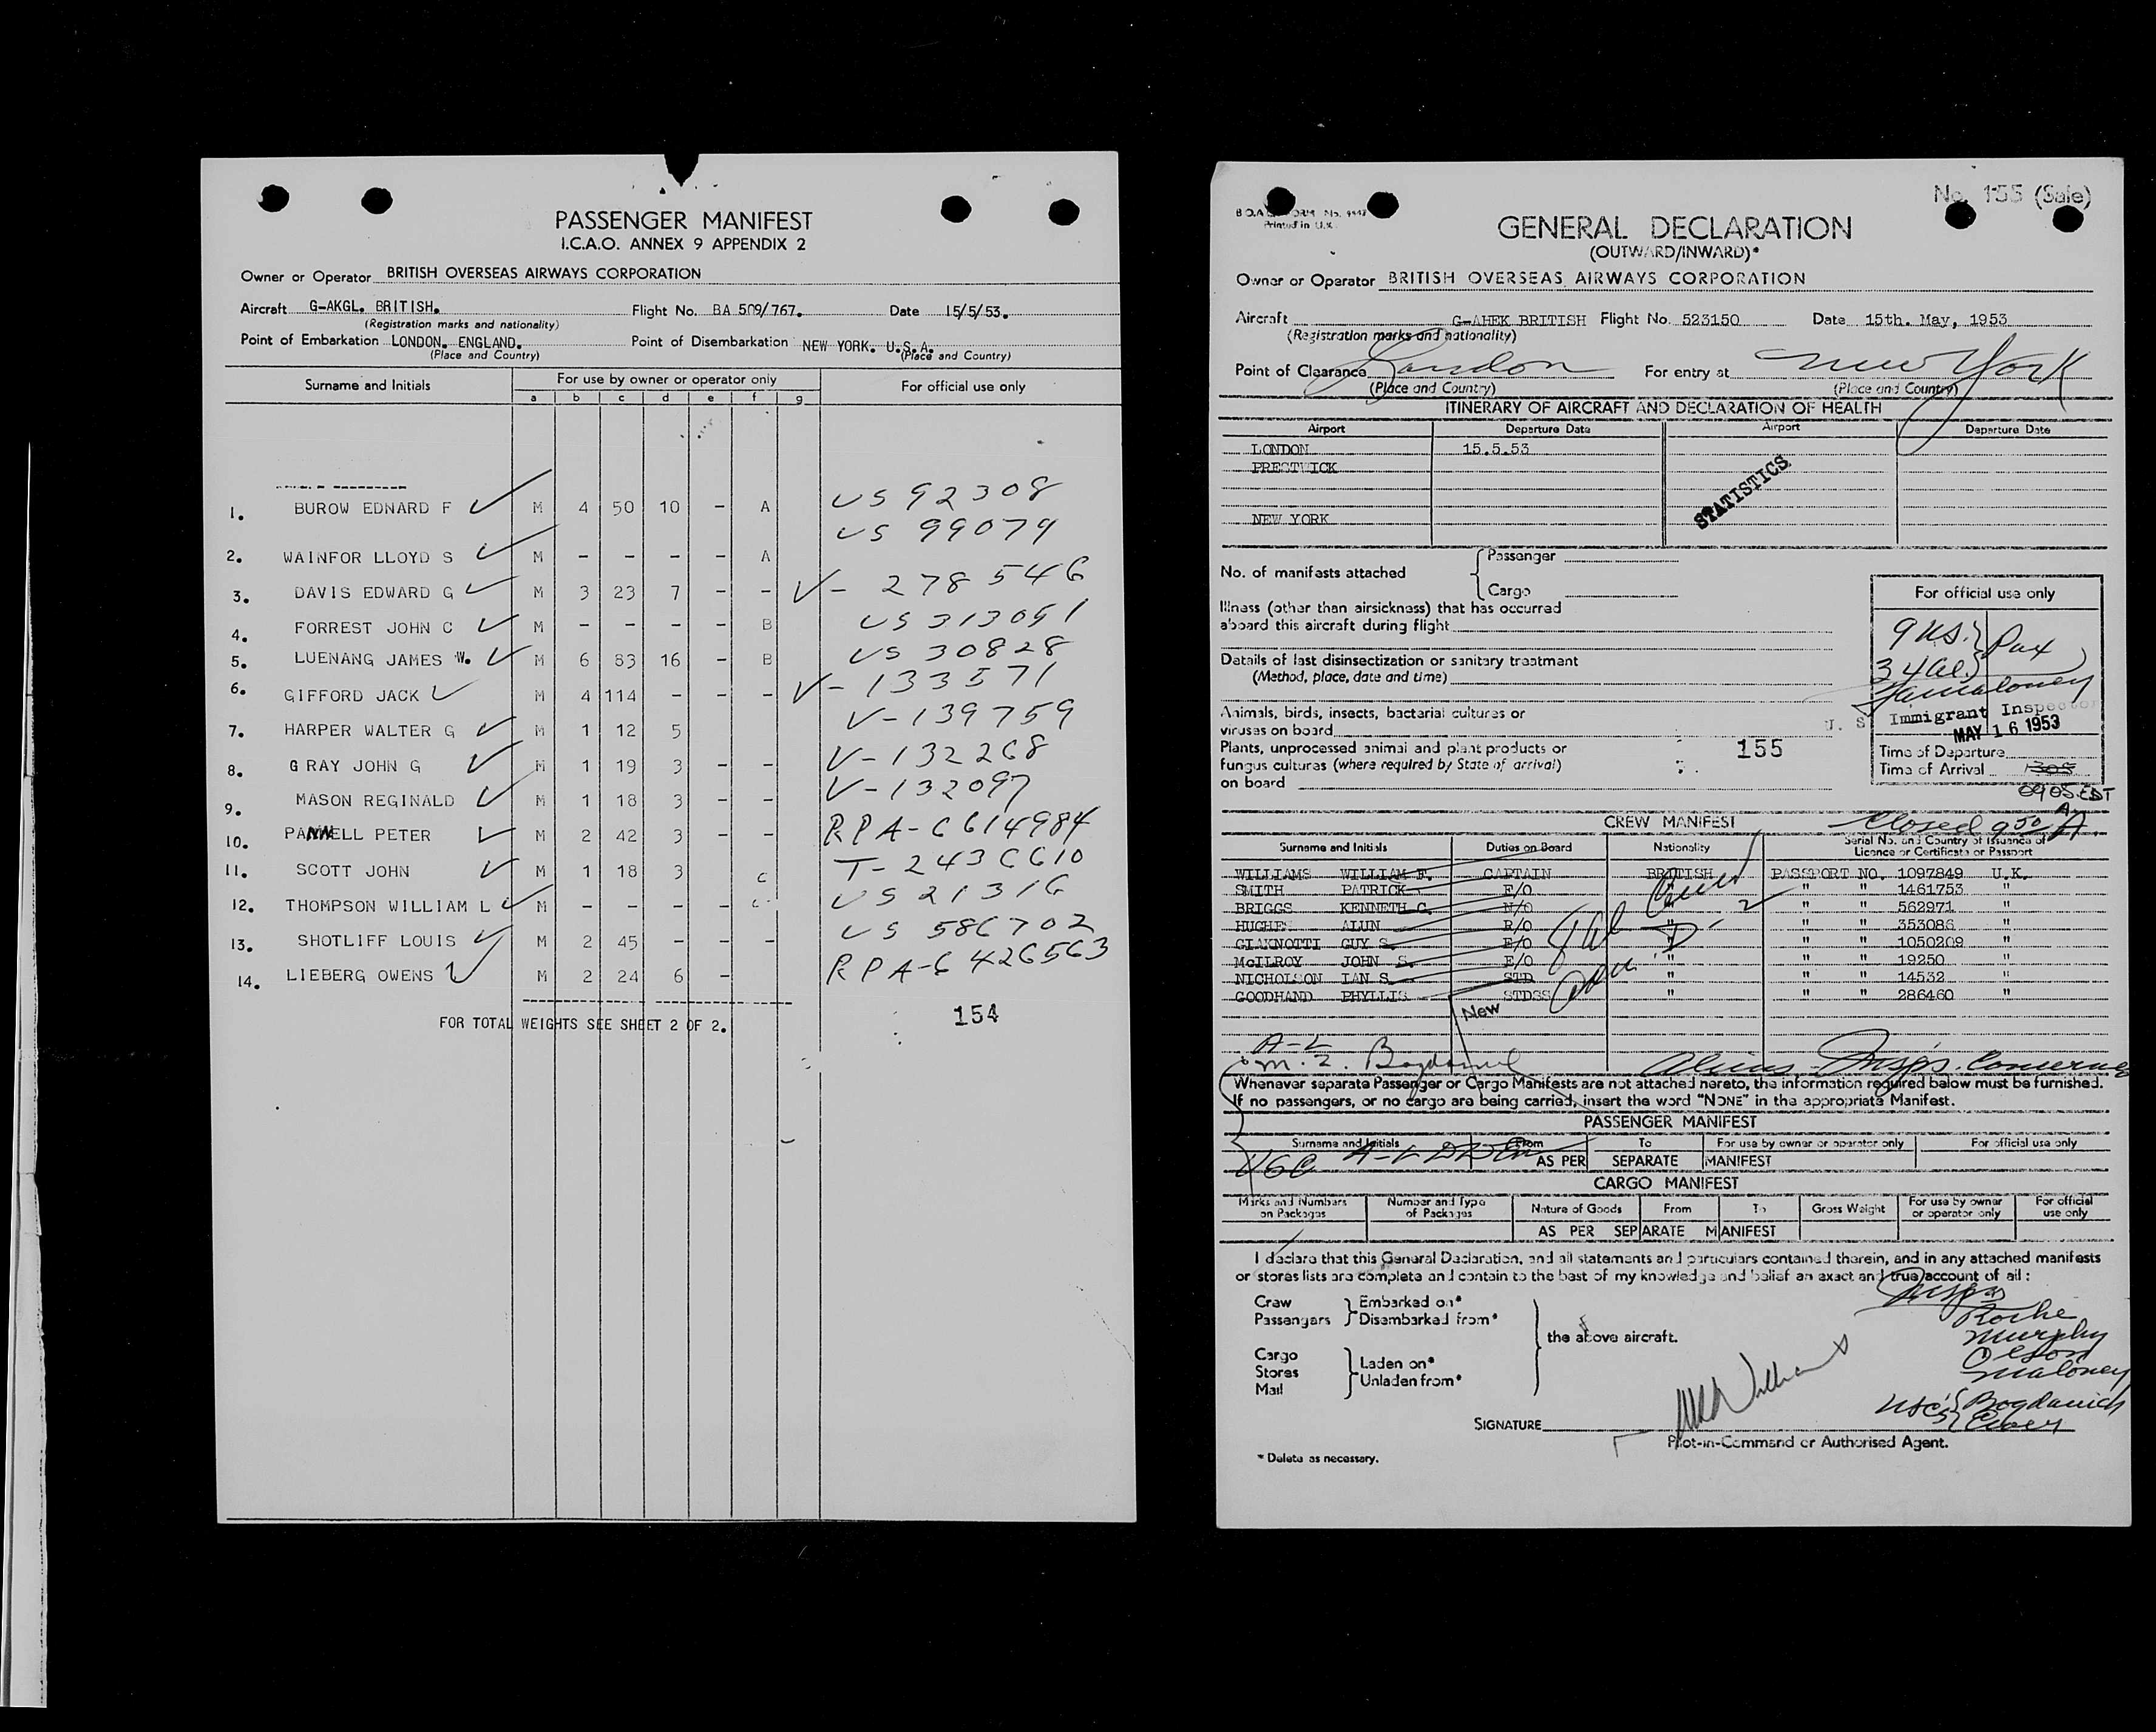 PASSENGER MANIFEST
I.C.A.O. ANNEX 9 APPENDIX 2
Owner or Operator BRITISH OVERSEAS AIRWAYS CORPORATION
Aircraft G-AKGL. BRITISH. Flight No. BA 509/767. Date 15/5/53.
(Registration marks and nationality)
Point of Embarkation LONDON. ENGLAND. Point of Disembarkation NEW YORK. U.S.A.
(Place and Country) (Place and Country)
Surname and Initials For use by owner or operator only For official use only
a b c d e f g
1. BUROW EDNARD F M 4 50 10 - A US 92308
US 99079
2. WAINFOR LLOYD S M - - - - A
3. DAVIS EDWARD G M 3 23 7 - - V- 278546
4. FORREST JOHN C M - - - - B US 313051
5. LUENANG JAMES W. M 6 83 16 - B US 30828
6. GIFFORD JACK M 4 114 - - - V-133571
7. HARPER WALTER G M 1 12 5 V-139759
8. GRAY JOHN G M 1 19 3 - - V-132268
9. MASON REGINALD M 1 18 3 - - V-132097
10. PANNELL PETER M 2 42 3 - - RPA-6614984
11. SCOTT JOHN M 1 18 3 - C T-2436610
12. THOMPSON WILLIAM L M - - - - C US 21316
13. SHOTLIFF LOUIS M 2 45 - - - US 586702
14. LIEBERG OWENS M 2 24 6 - RPA-6426563
FOR TOTAL WEIGHTS SEE SHEET 2 OF 2.
154
No. 155 (Sale)
Printed in U.K.
GENERAL DECLARATION
(OUTWARD/INWARD)*
Owner or Operator BRITISH OVERSEAS AIRWAYS CORPORATION
Aircraft G-AHEK BRITISH Flight No. 523150 Date 15th. May, 1953
(Registration marks and nationality)
Point of Clearance London For entry at New York
(Place and Country) (Place and Country)
ITINERARY OF AIRCRAFT AND DECLARATION OF HEALTH
Airport Departure Date Airport Departure Date
LONDON 15.5.53
PRESTWICK
STATISTICS
NEW YORK
No. of manifests attached { Passenger
Cargo
Illness (other than airsickness) that has occurred
aboard this aircraft during flight
Details of last disinsectization or sanitary treatment
(Method, place, date and time)
Animals, birds, insects, bacterial cultures or
viruses on board
Plants, unprocessed animal and plant products or
fungus cultures (where required by State of arrival)
on board
155
For official use only
9 US. } Pax
34 al.
Jamaloney
U. S. Immigrant Inspector
MAY 16 1953
Time of Departure
Time of Arrival 1305
0905 EDT
CREW MANIFEST
Closed 9 50 A
Surname and Initials Duties on Board Nationality Serial No. and Country of Issuance of
Licence or Certificate or Passport
WILLIAMS WILLIAM F. CAPTAIN BRITISH PASSPORT NO. 1097849 U.K.
SMITH PATRICK F/O " " 1461753 "
BRIGGS KENNETH C. N/O " " 562971 "
HUGHES ALUN R/O " " 353086 "
GIAKNOTTI GUY S. E/O " " 1050209 "
McILROY JOHN S. E/O " " " 19250 "
NICHOLSON IAN S. STD " " " 14532 "
GOODHAND PHYLLIS STDSS " " " 286460 "
New
A-L
Whenever separate Passenger or Cargo Manifests are not attached hereto, the information required below must be furnished.
If no passengers, or no cargo are being carried, insert the word "NONE" in the appropriate Manifest.
PASSENGER MANIFEST
Surname and Initials From To For use by owner or operator only For official use only
AS PER SEPARATE MANIFEST
CARGO MANIFEST
Marks and Numbers on Packages Number and Type of Packages Nature of Goods From To Gross Weight For use by owner or operator only For official use only
AS PER SEPARATE MANIFEST
I declare that this General Declaration, and all statements and particulars contained therein, and in any attached manifests
or stores lists are complete and contain to the best of my knowledge and belief an exact and true account of all :
Crew } Embarked on*
Passengers } Disembarked from*
the above aircraft.
Cargo
Stores } Laden on*
Mail } Unladen from*
Insps
Roche
Murphy
Olson
Maloney
USC's { Bogdanich
SIGNATURE
Pilot-in-Command or Authorised Agent.
* Delete as necessary.